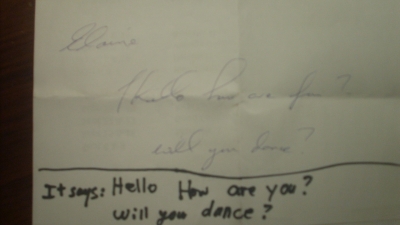 Elaine
Hello how are you?
will you dance?
It says: Hello How are you?
will you dance?